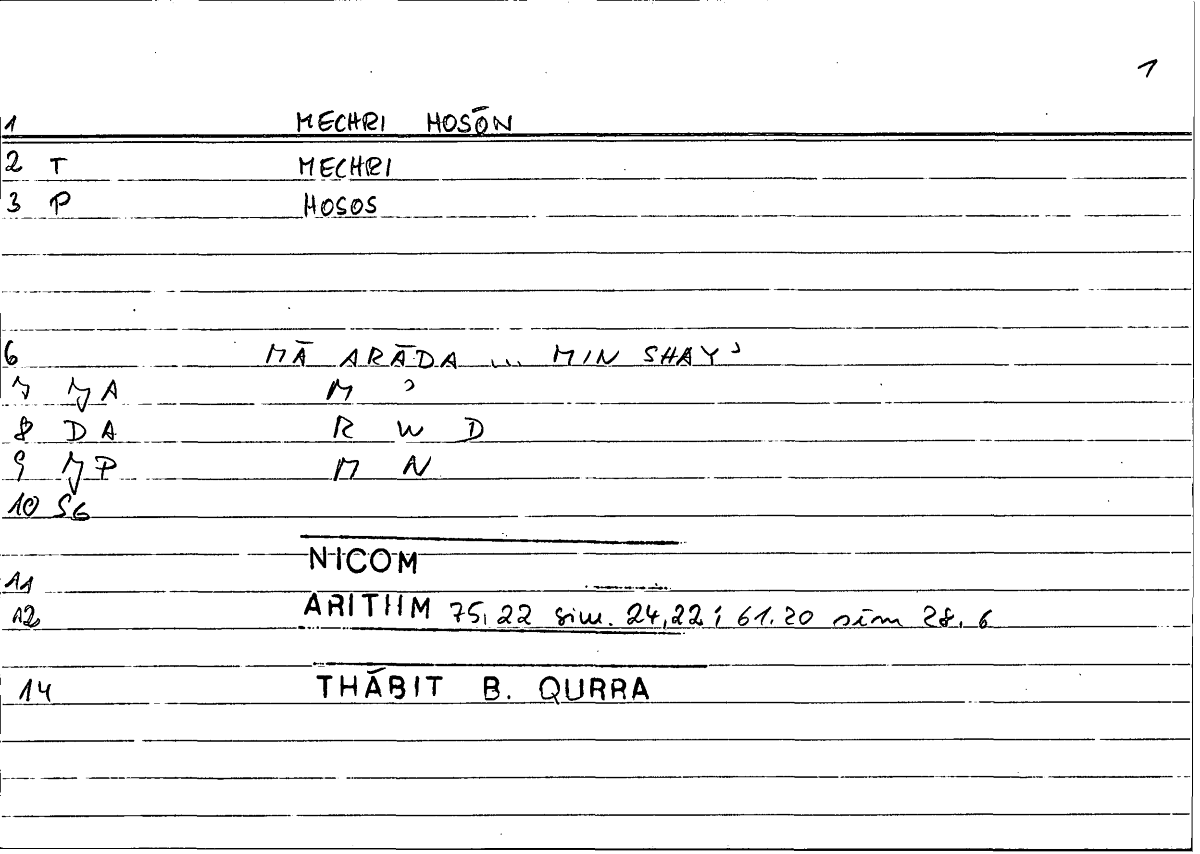 1
1 MECHRI HOSŌN
2 T MECHRI
3 P HOSOS
6 MĀ ARĀDA ... MIN SHAYʾ
7 IJA M ʾ
8 DA R W D
9 IJP M N
10 SG
NICOM
11
12 ARITHM 75,22 sim. 24,22; 61.20 sim 28.6
14 THĀBIT B. QURRA